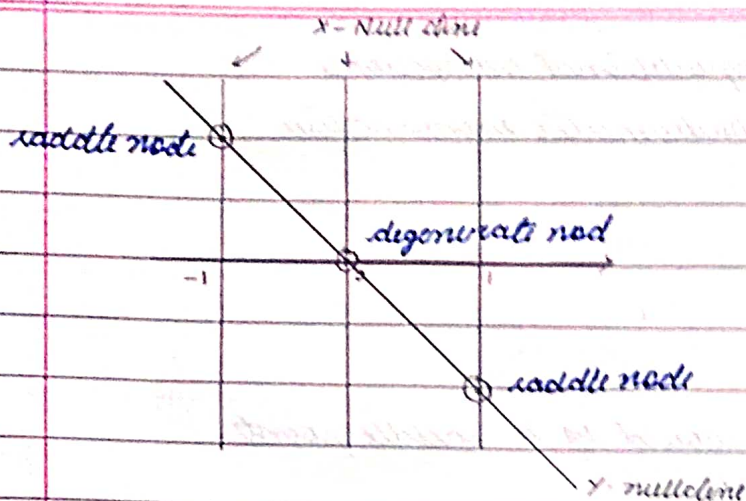 X- Null cline
saddle node
degenerate nod
-1
1
saddle node
Y-nullcline